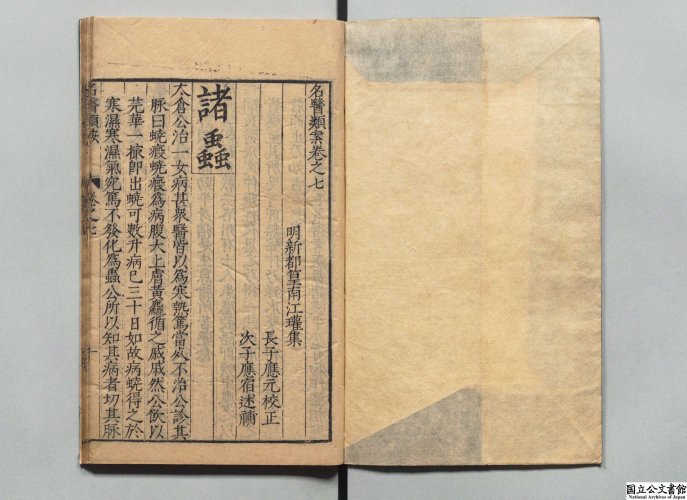 名醫類案卷之七
明新都篁南江瓘集
長子應元校正
次子應宿述補
諸蟲
太倉公治一女病甚眾醫皆以為寒熱篤當死不治公診其
脉曰蟯瘕蟯瘕為病腹大上膚黃麤循之戚戚然公飲以
芫華一撮即出蟯可數升病已三十日如故病蟯得之於
寒濕寒濕氣宛篤不發化為蟲公所以知其病者切其脉
名醫類案
卷之七
一
国立公文書館
National Archives of Japan